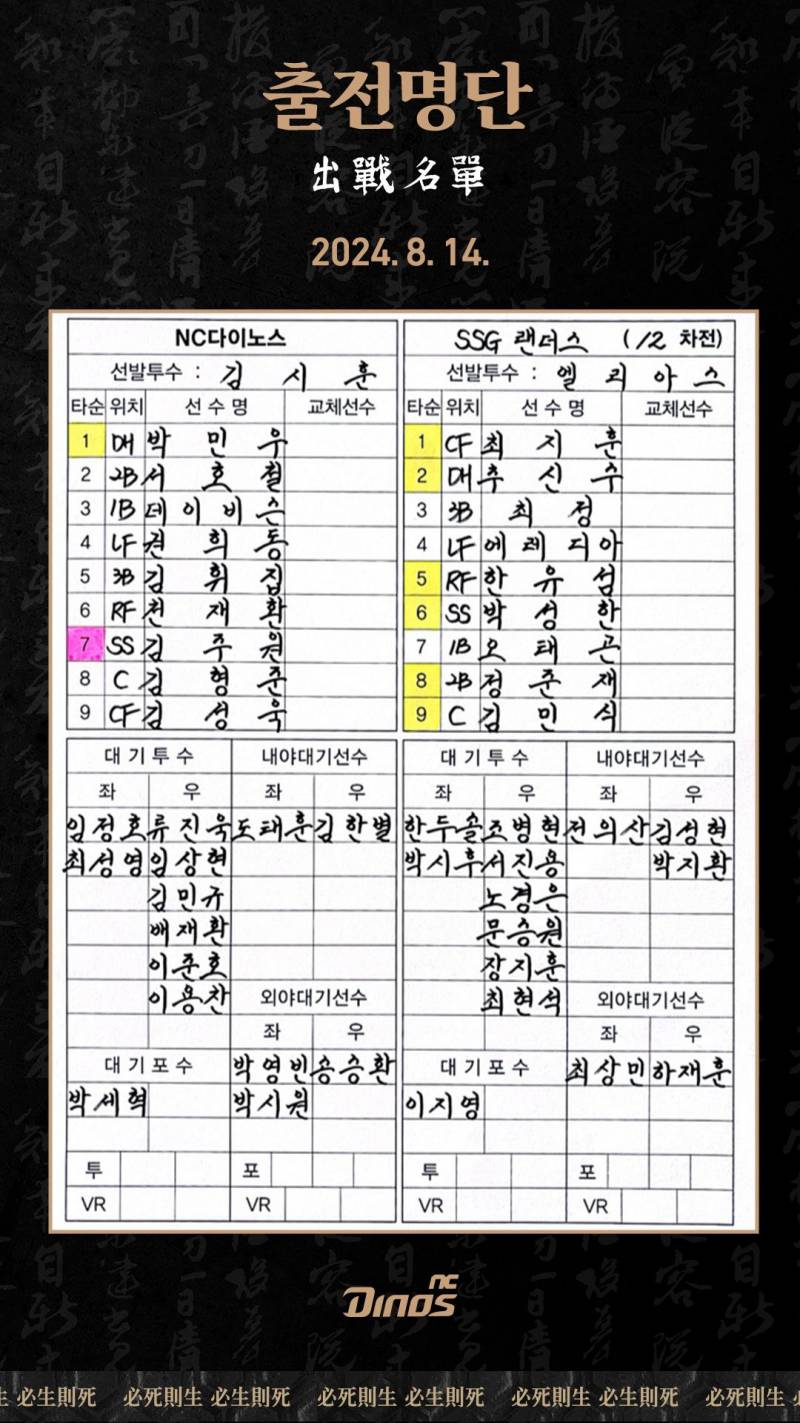 출전명단
出戰名單
2024. 8. 14.
NC다이노스
선발투수 : 김 시 훈
타순 위치 선수명 교체선수
1 DH 박 민 우
2 2B 서 호 철
3 1B 데 이 비 슨
4 LF 권 희 동
5 3B 김 휘 집
6 RF 천 재 환
7 SS 김 주 원
8 C 김 형 준
9 CF 김 성 욱
SSG 랜더스 (12 차전)
선발투수 : 엘 리 아 스
타순 위치 선수명 교체선수
1 CF 최 지 훈
2 DH 추 신 수
3 3B 최 정
4 LF 에 레 디 아
5 RF 한 유 섬
6 SS 박 성 한
7 1B 오 태 곤
8 2B 정 준 재
9 C 김 민 식
대기투수 내야대기선수
좌 우 좌 우
임정호 류진욱 도태훈 김한별
최성영 임상현
김민규
배재환
이준호
이용찬 외야대기선수
좌 우
대기포수 박영빈 송승환
박세혁 박시원
투 포
VR VR
대기투수 내야대기선수
좌 우 좌 우
한두솔 조병현 전의산 김성현
박시후 서진용 박지환
노경은
문승원
장지훈
최현석 외야대기선수
좌 우
대기포수 최상민 하재훈
이지영
투 포
VR VR
NC
Dinos
生 必生則死 必死則生 必生則死 必死則生 必生則死 必死則生 必生則死 必死則